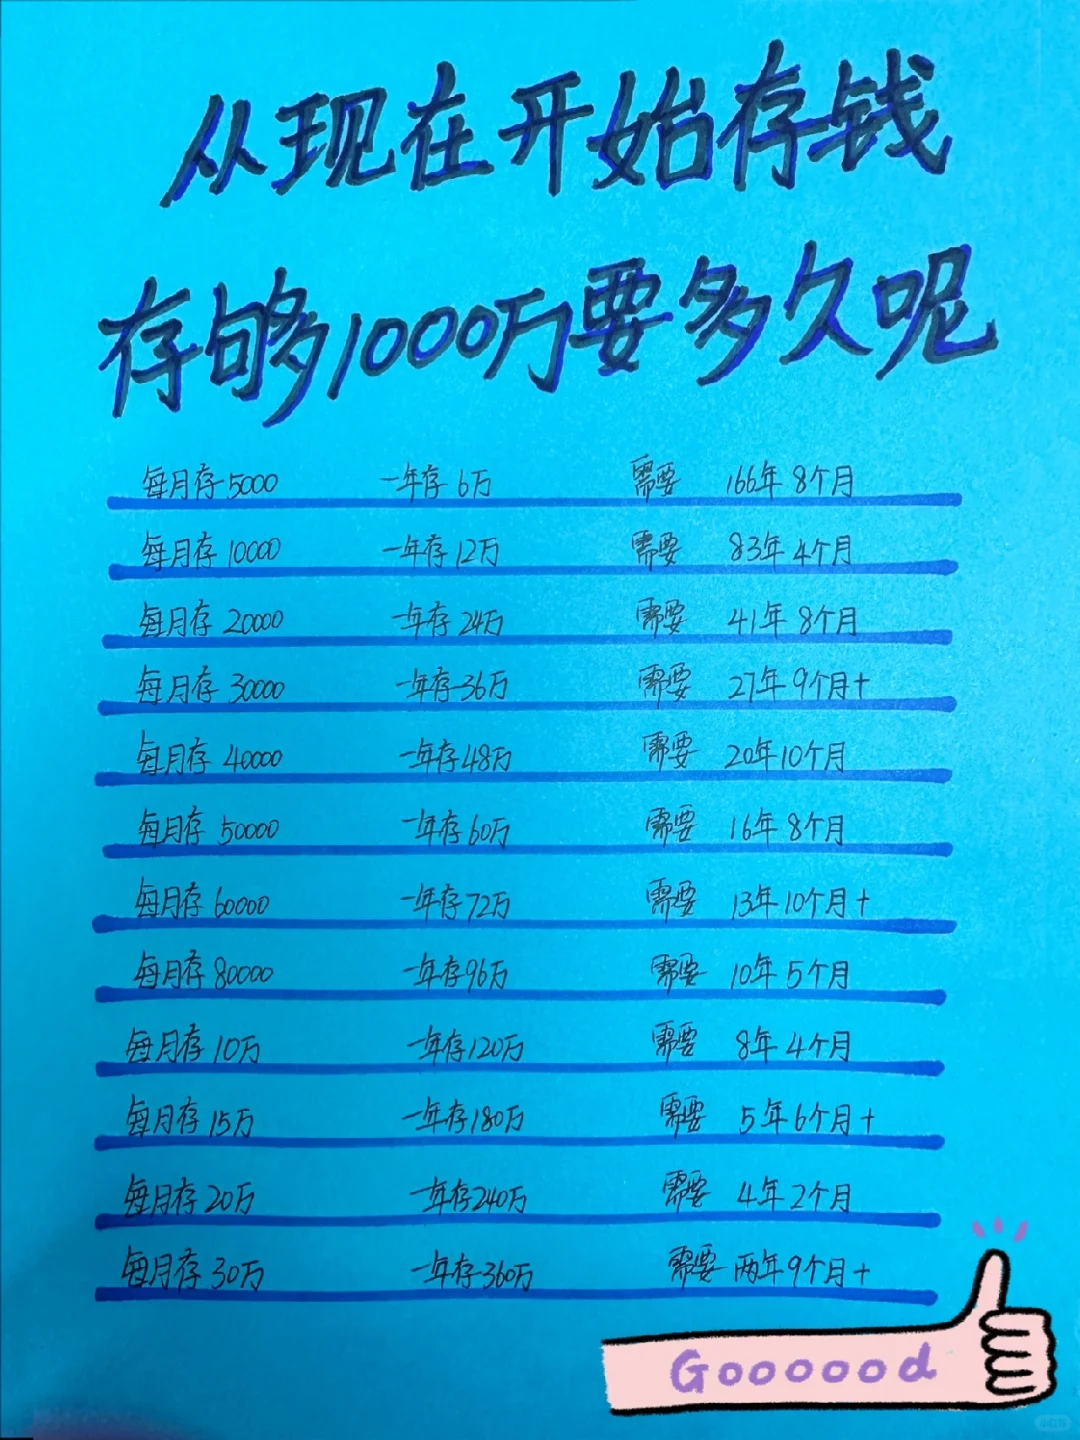 从现在开始存钱
存够1000万要多久呢
每月存5000 一年存6万 需要 166年8个月
每月存10000 一年存12万 需要 83年4个月
每月存20000 一年存24万 需要 41年8个月
每月存30000 一年存36万 需要 27年9个月+
每月存40000 一年存48万 需要 20年10个月
每月存50000 一年存60万 需要 16年8个月
每月存60000 一年存72万 需要 13年10个月+
每月存80000 一年存96万 需要 10年5个月
每月存10万 一年存120万 需要 8年4个月
每月存15万 一年存180万 需要 5年6个月+
每月存20万 一年存240万 需要 4年2个月
每月存30万 一年存360万 需要 两年9个月+
Goooood
小红书